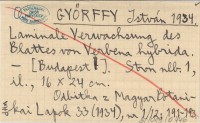 GYÖRFFY István 1934.
Laminale Verwachsung des
Blattes von Verbena hybrida.
— [Budapest]. Stron nlb. 1,
il., 16 x 24 cm.
Odbitka z Magyar botani-
kai Lapok 33 (1934), nr 1/12,